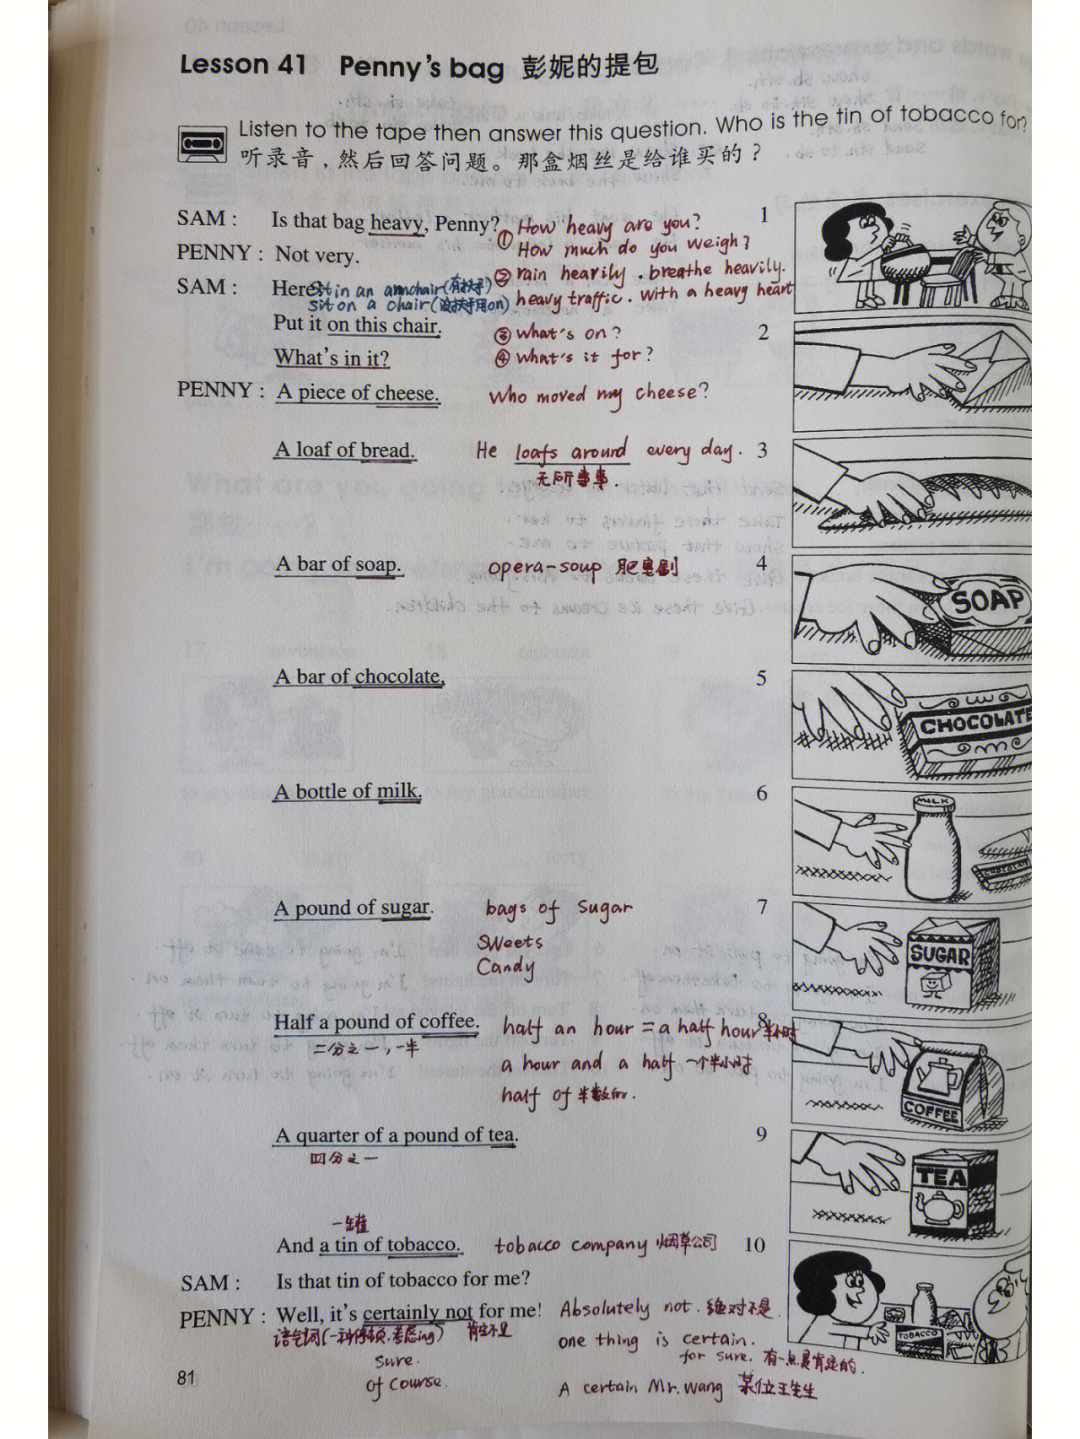 Lesson 41 Penny's bag 彭妮的提包
Listen to the tape then answer this question. Who is the tin of tobacco for?
听录音，然后回答问题。那盒烟丝是给谁买的？
SAM: Is that bag heavy, Penny? 1
① How heavy are you?
How much do you weigh?
PENNY: Not very.
② rain heavily. breathe heavily.
heavy traffic. with a heavy heart
SAM: Here!
sit in an armchair (有扶手)
sit on a chair (没扶手用on)
Put it on this chair. ③ what's on? 2
What's in it? ④ what's it for?
PENNY: A piece of cheese. Who moved my cheese?
A loaf of bread. He loafs around every day. 3
无所事事.
A bar of soap. opera-soup 肥皂剧 4
SOAP
A bar of chocolate. 5
CHOCOLATE
A bottle of milk. 6
MILK
CHOCOLATE
A pound of sugar. bags of Sugar 7
Sweets
Candy
SUGAR
Half a pound of coffee. half an hour = a half hour 半小时 8
二分之一，一半
a hour and a half 一个半小时
half of 半数的.
COFFEE
A quarter of a pound of tea. 9
四分之一
TEA
一罐
And a tin of tobacco. tobacco company 烟草公司 10
SAM: Is that tin of tobacco for me?
PENNY: Well, it's certainly not for me! Absolutely not. 绝对不是.
TOBACCO
语气词(一种停顿.考虑ing) 肯定不是
one thing is certain.
sure.
for sure. 有一点是肯定的.
of course.
A certain Mr. Wang 某位王先生
81